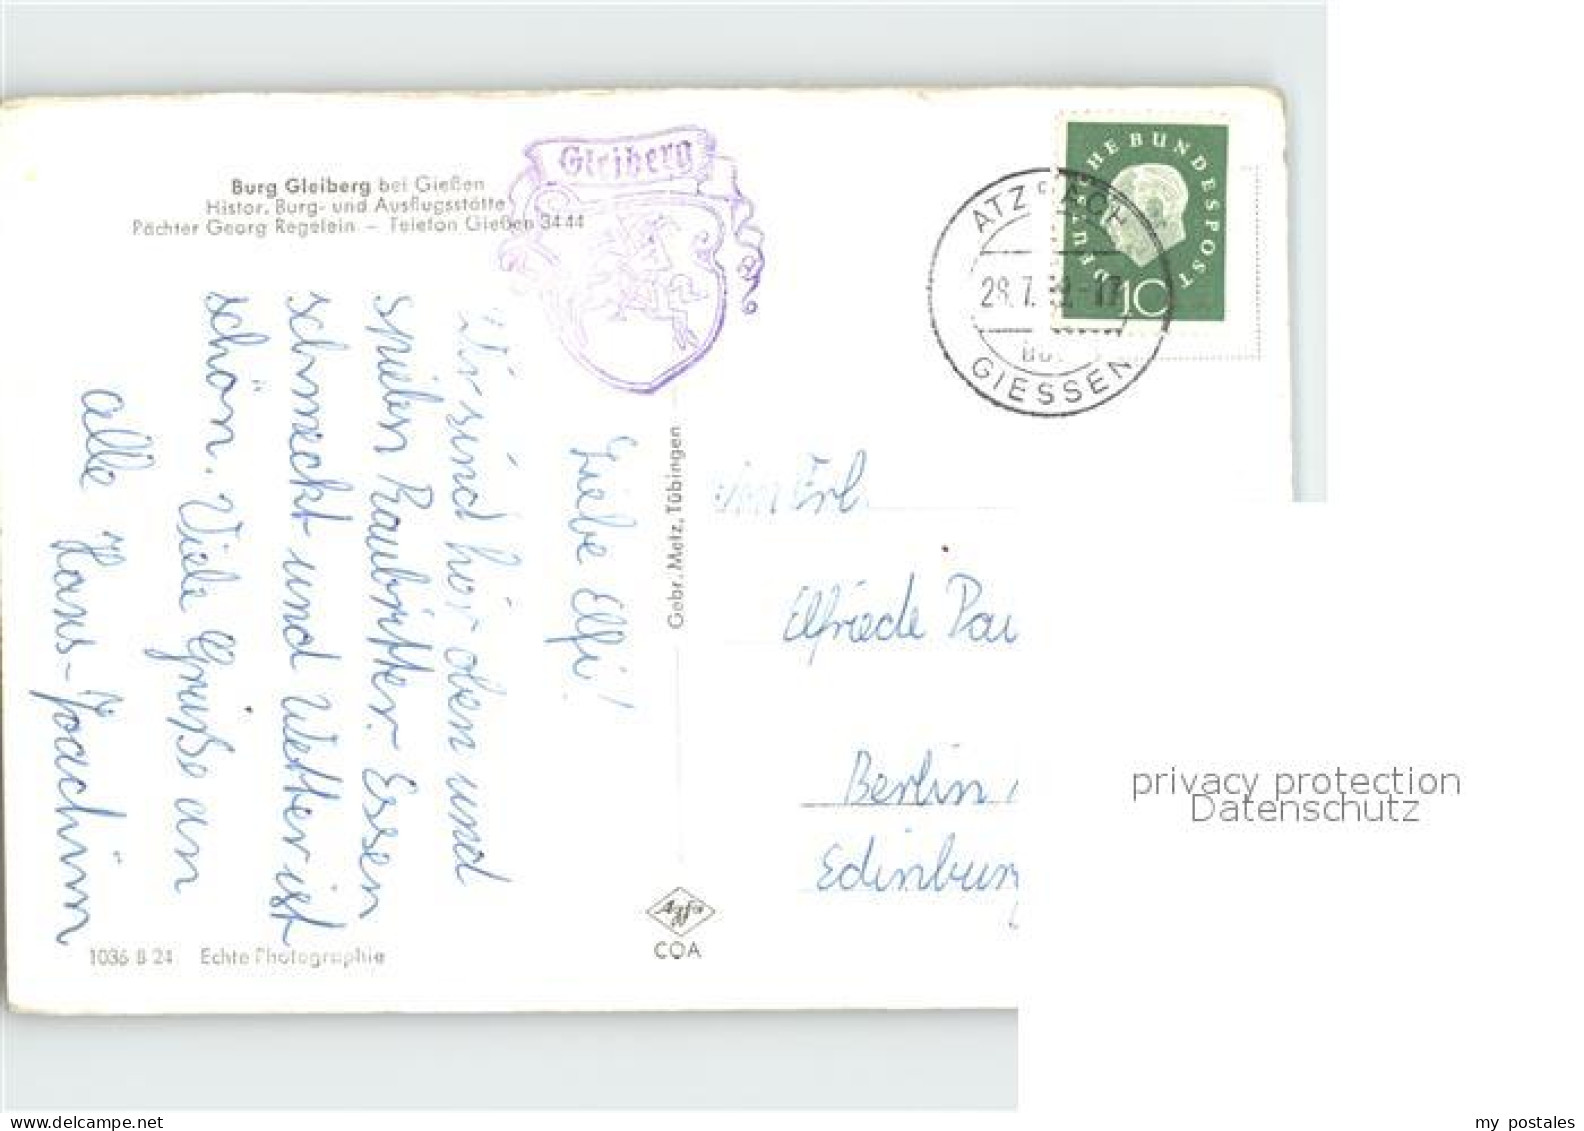 Burg Gleiberg bei Gießen
Histor. Burg- und Ausflugsstätte
Pächter Georg Regelein – Telefon Gießen 3444
Gleiberg
Liebe Elfi!
Wir sind hier oben und
spielen Raubritter. Essen
schmeckt und Wetter ist
schön. Viele Grüße an
alle Hans-Joachim
1036 B 24 Echte Photographie
Gebr. Metz, Tübingen
Agfa
COA
DEUTSCHE BUNDESPOST
10
ATZBACH
28.7. -17
GIESSEN
Elfriede
Berlin
privacy protection
Datenschutz
www.delcampe.net
my postales